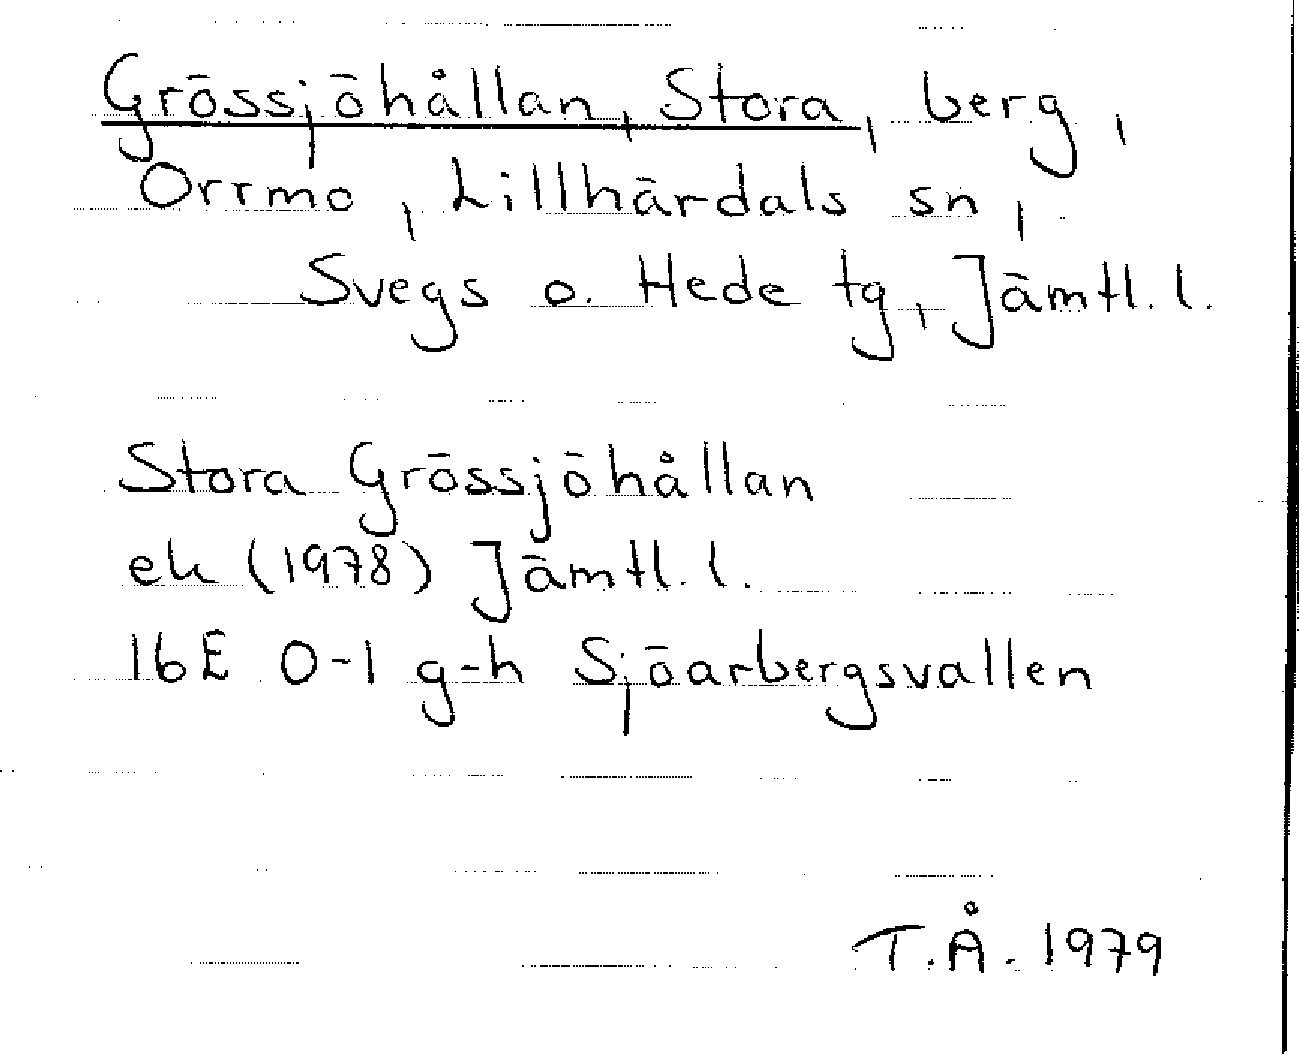 Grössjöhållan, Stora, berg,
Orrmo, Lillhärdals sn,
Svegs o. Hede tg, Jämtl. l.
Stora Grössjöhållan
ek (1978) Jämtl. l.
16E 0-1 g-h Sjöarbergsvallen
T.Å. 1979